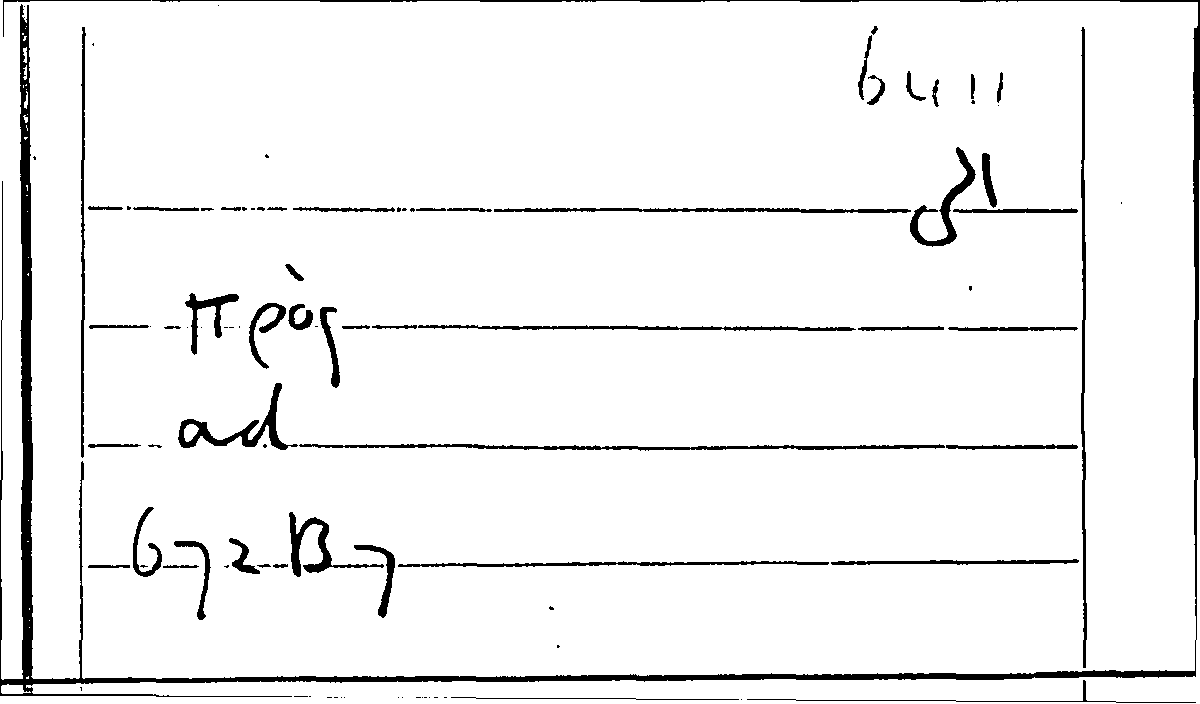 6411
الى
πρὸς
ad
672B7